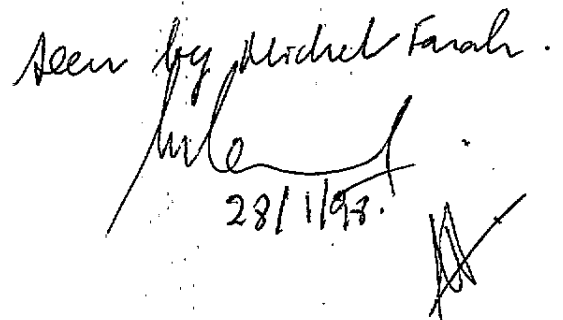 seen by Michel Farah.
28/1/98.